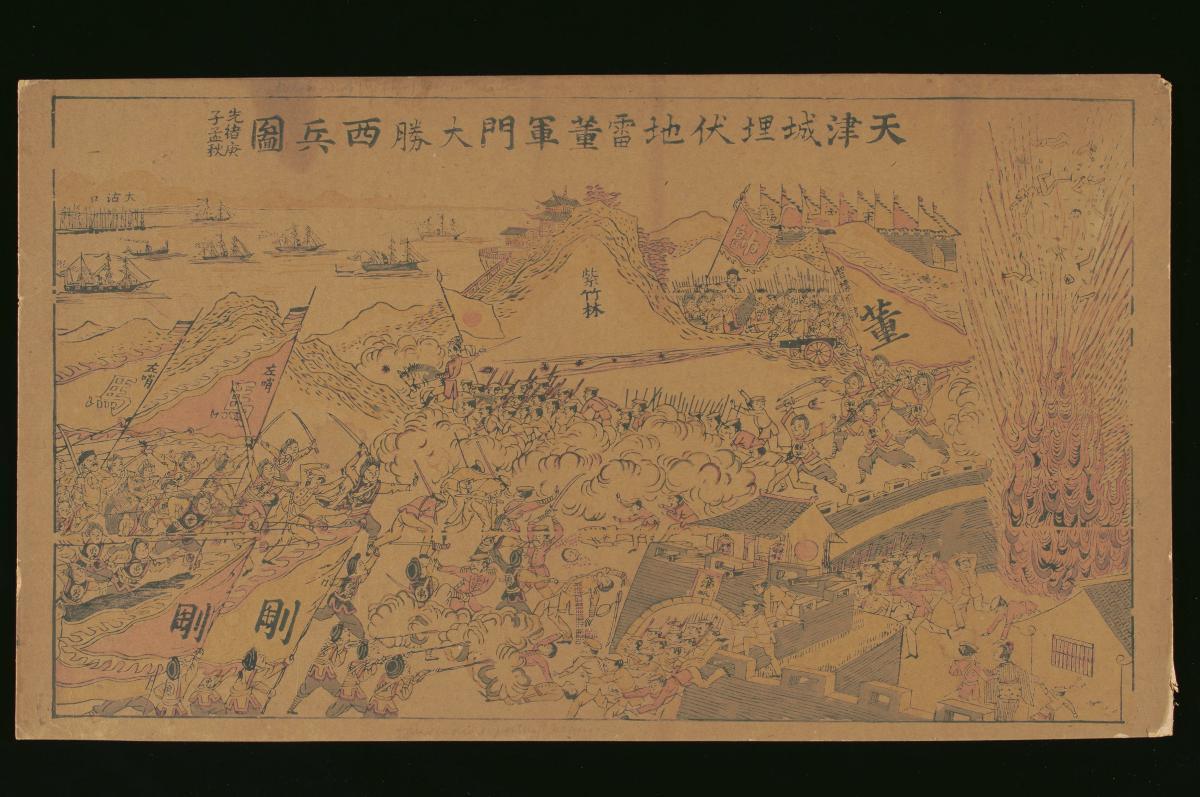 天津城埋伏地雷董軍門大勝西兵圖
光緒庚
子孟秋
大沽口
紫竹林
董
左哨
左哨
剛
剛